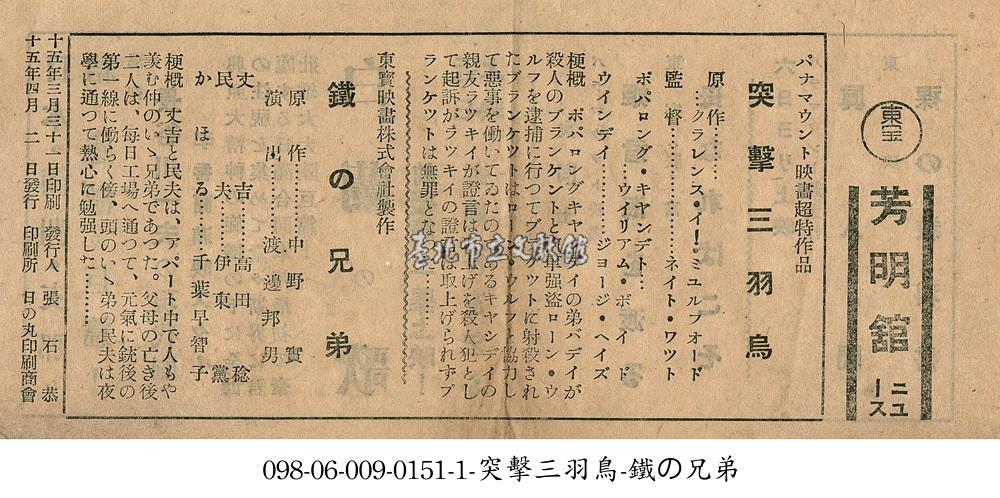 東宝
芳明舘
ニュース
パナマウント映畵超特作品
突擊三羽烏
原作……クラレンス・イー・ミルフォード
監督………ネイト・ワツト
ホパロング・キャシデイ……ウイリアム・ボイド
ウインデイ………ジョージ・ヘイズ
梗槪 ホパロングキャシデイの弟バデイが
殺人のブランケントと列車强盜ローン・ウ
ルフを逮捕に行つてブランケツトに射殺され
たブランケツトはローン・ウルフと協力し
て惡事を働いてゐたのであるキヤシデイの
親友ラツキイが證言は上げを殺人犯とし
て起訴がラツキイの證言は取上げられずブ
ランケツトは無罪となつた……
東寶映畵株式會社製作
鐵の兄弟
原作…中野實
演出…渡邊邦男
丈吉…高田稔
民夫…伊東薰
かほる…千葉早智子
梗槪 丈吉と民夫は、アパート中で人もや
羨む仲のいゝ兄弟であつた。父母の亡き後
二人は、每日工場へ通つて、元氣に銃後の
第一線に働らく傍、頭のいゝ弟の民夫は夜
學に通つて熱心に勉强した………
十五年三月三十一日印刷 發行人 張石恭
十五年四月 二 日發行 印刷所 日の丸印刷商會
臺北市立文獻館
098-06-009-0151-1-突擊三羽鳥-鐵の兄弟